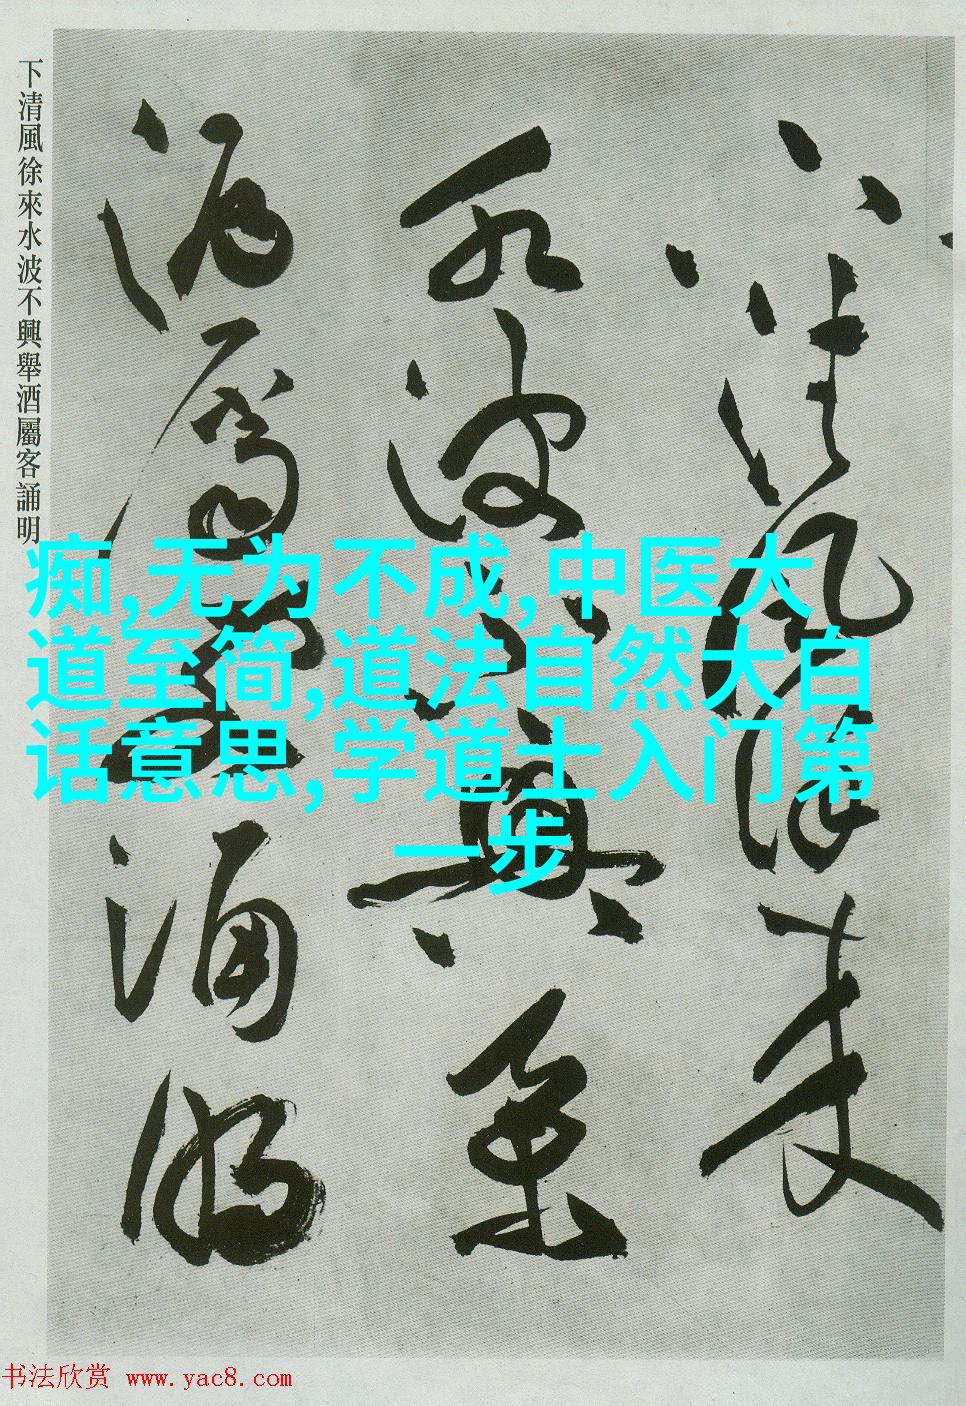 下清風徐來水波不興舉酒屬客誦明
痴,无为不成,中医大
道至简,道法自然大白
话意思,学道士入门第
一步
清風徐来
水波不興舉
酒屬客誦明
书法欣赏 www.yac8.com